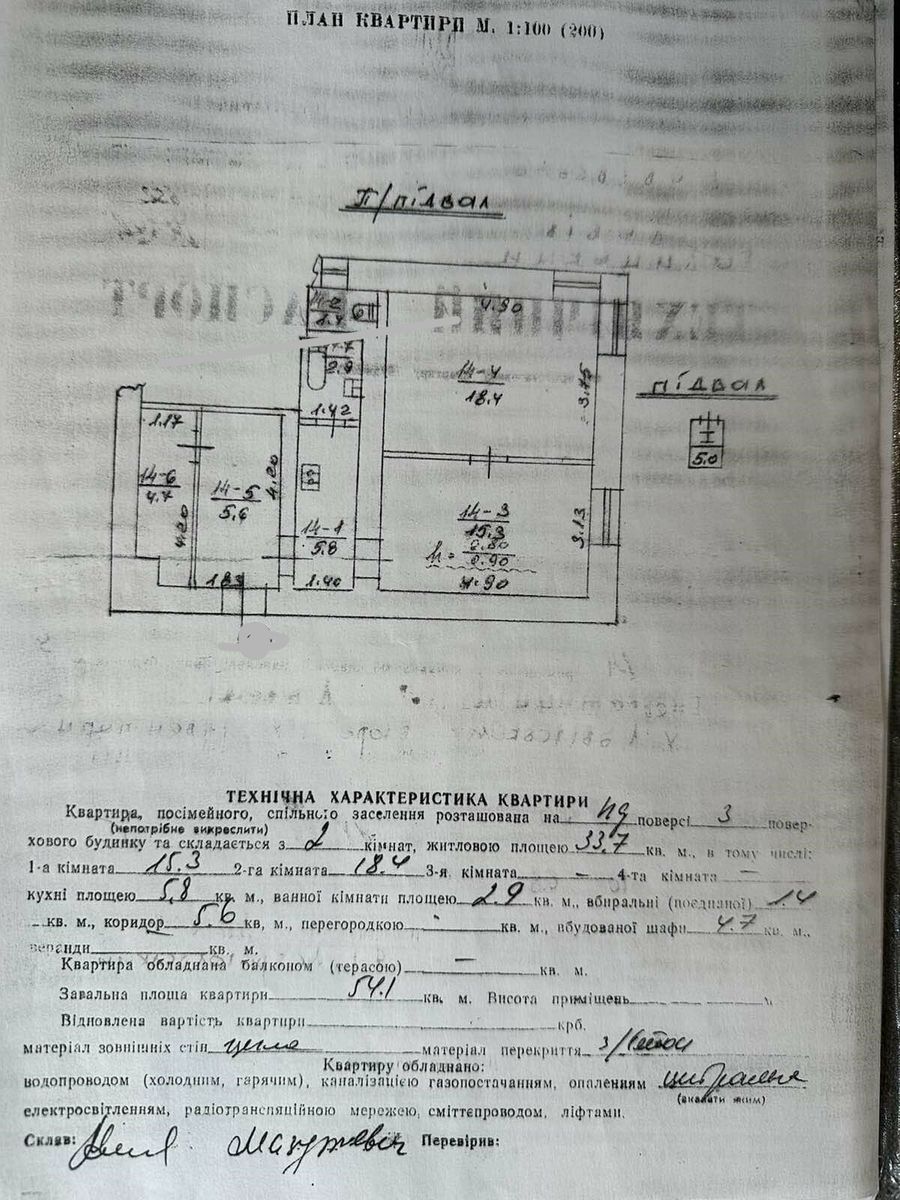 ПЛАН КВАРТИРИ М. 1:100 (200)
П/підвал
14-2
1.4
4.90
2.9
14-4
18.4
3.75
підвал
I
5.0
1.42
1.17
14-6
4.7
4.20
14-5
5.6
4.20
14-1
5.8
1.40
14-3
15.3
h=
2.80
2.90
4.90
3.13
ТЕХНІЧНА ХАРАКТЕРИСТИКА КВАРТИРИ
Квартира, посімейного, спільного заселення розташована на н9 поверсі 3 повер-
(непотрібне викреслити)
хового будинку та складається з 2 кімнат, житловою площею 33,7 кв. м., в тому числі:
1-а кімната 15.3 2-га кімната 18.4 3-я, кімната – 4-та кімната –
кухні площею 5,8 кв. м., ванної кімнати площею 2.9 кв. м., вбиральні (поєднаної) 1.4
кв. м., коридор 5.6 кв, м., перегородкою кв. м., вбудованої шафи 4.7 кв. м.,
веранди кв. м.
Квартира обладнана балконом (терасою) – кв. м.
Завальна площа квартири 54.1 кв. м. Висота приміщень м
Відновлена вартість квартири крб.
матеріал зовнішніх стін цегла матеріал перекриття з/бетон
Квартиру обладнано:
водопроводом (холодним, гарячим), каналізацією газопостачанням, опаленням
(вказати яким)
електросвітленням, радіотрансляційною мережею, сміттєпроводом, ліфтами.
Склав: Перевірив: